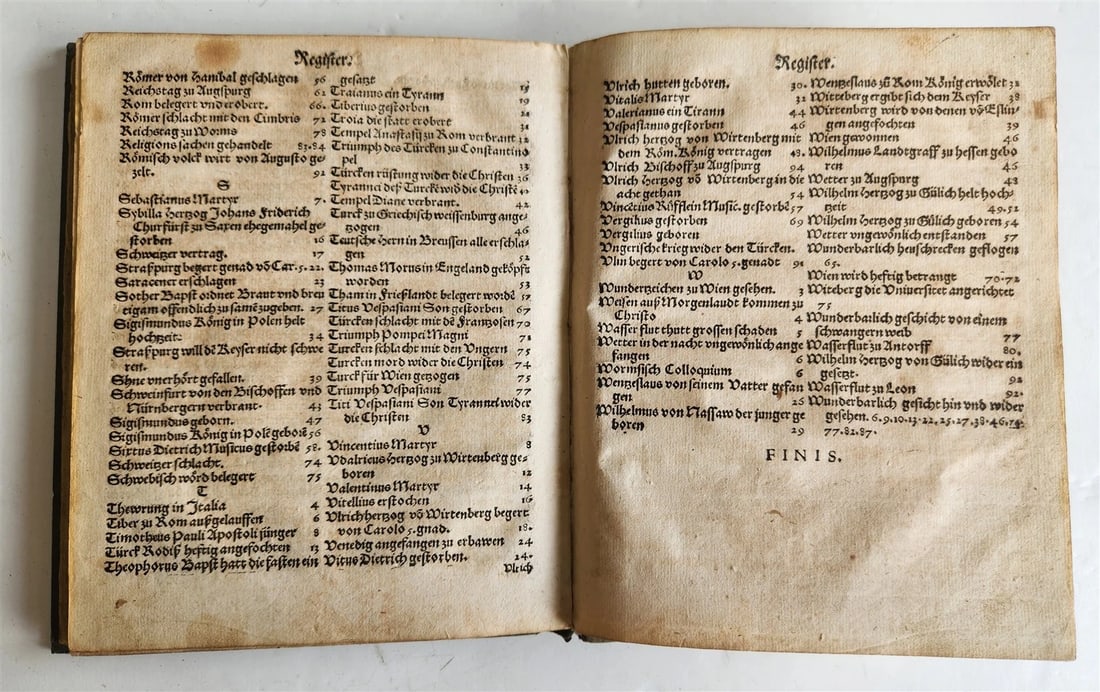 Register.
Römer von Hanibal geschlagen 56
Reichstag zu Augspurg 61
Rom belegert vnd erobert. 66.
Römer schlacht mit den Cimbris 72
Reichstag zu Worms 78
Religions sachen gehandelt 83.84
Römisch volck wirt von Augusto ge
zelt. 92
S
Sebastianus Martyr 7.
Sybilla Hertzog Johans Friderich
Churfürst zu Saxen ehegemahel ge
storben 16
Schweitzer vertrag. 17
Straßpurg begert genad vō Car. 5. 22.
Saracener erschlagen 23
Sother Bapst ordnet Braut vnd breu
tigam offendlich zu samē zugeben. 27
Sigismundus König in Polen helt
hochzeit: 34
Straßpurg will dē Keyser nicht schwe
ren.
Schne vnerhört gefallen. 39
Schweinfurt von den Bischoffen vnd
Nürnbergern verbrant. 43
Sigismundus geborn. 47
Sigismundus König in Polē geborē 56
Sixtus Dietrich Musicus gestorbē 58.
Schweitzer schlacht. 74
Schwebisch wörd belegert 75
T
Thewrung in Italia 4
Tiber zu Rom außgelauffen 6
Timotheus Pauli Apostoli jünger 8
Türck Rodiß hefftig angefochten 13
Theophorus Bapst hatt die fasten ein
gesatzt
Traianus ein Tyrann 19
Tiberius gestorben 19
Troia die statt erobert 21
Tempel Anastasij zu Rom verbrant 32
Triumph des Türcken zu Constantino
pel 33
Türcken rüstung wider die Christen 36
Tyrannei deß Turckē wid die Christē
Tempel Diane verbrant. 42
Turck zu Griechisch weissenburg ange-
zogen 46
Teutsche Hern in Breussen alle erschla-
gen 52
Thomas Morus in Engeland geköpfft
worden 53
Tham in Frießlandt belegert wordē 57
Titus Vespasiani Son gestorben 67
Türcken schlacht mit dē Frantzosen 70
Triumph Pompei Magni 71
Turcken schlacht mit den Vngern 75
Turcken mord wider die Christen 74
Turck für Wien getzogen 75
Triumph Vespasiani 77
Titi Vespasiani Son Tyrannei wider
die Christen 83
V
Vincentius Martyr 8
Vdalricus Hertzog zu Wirtenberg ge-
boren 12
Valentinus Martyr 14
Vitellius erstochen 16
Vlrich hertzog vō Wirtenberg begert
von Carolo 5. gnad. 18.
Venedig angefangen zu erbawen 24
Vitus Dietrich gestorben. 24.
Vlrich
Register.
Vlrich Hutten geboren. 30.
Vitalis Martyr 32
Valerianus ein Tirann 44
Vespasianus gestorben 46
Vlrich Hertzog von Wirtenberg mit
dem Röm. König vertragen 48.
Vlrich Bischoff zu Augspurg 94
Vlrich Hertzog vō Wirtenberg in die
acht gethan 54
Vincētius Rüfflein Music. gestorbē 57
Vergilius gestorben 69
Vergilius geboren
Vngerische krieg wider den Türcken.
Vlm begert von Carolo 5. genadt 91
W
Wunderzeichen zu Wien gesehen. 3
Weisen auß Morgenlandt kommen zu
Christo 4
Wasser flut thutt grossen schaden 5
Wetter in der nacht vngewönlich ange
fangen 6
Wormsisch Colloquium 6
Wentzeslaus von seinem Vatter gefan
gen 26
Wilhelmus von Nassaw der junger ge
boren 29
Wentzeslaus zū Rom König erwölet 32
Witteberg ergibt sich dem Keyser 38
Wirtenberg wird von denen vō Eslin-
gen angefochten 39
Wien gewonnen 46
Wilhelmus Landtgraff zu Hessen gebo
ren 46
Wetter zu Augspurg 48
Wilhelm Hertzog zu Gülich helt hoch-
zeit 49.52
Wilhelm Hertzog zu Gülich geboren 54
Wetter vngewonlich entstanden 57
Wunderbarlich heuschrecken geflogen
65.
Wien wird hefftig betrangt 70.72
Witeberg die Vniversitet angerichtet
75
Wunderbarlich geschicht von einem
schwangern weib 77
Wasserflut zu Antorff 80.
Wilhelm Hertzog von Gülich wider ein
gesetzt. 92
Wasserflut zu Leon 92.
Wunderbarlich gesicht hin vnd wider
gesehen. 6.9.10.13.22.25.27.38.46.74.
77.82.87.
FINIS.